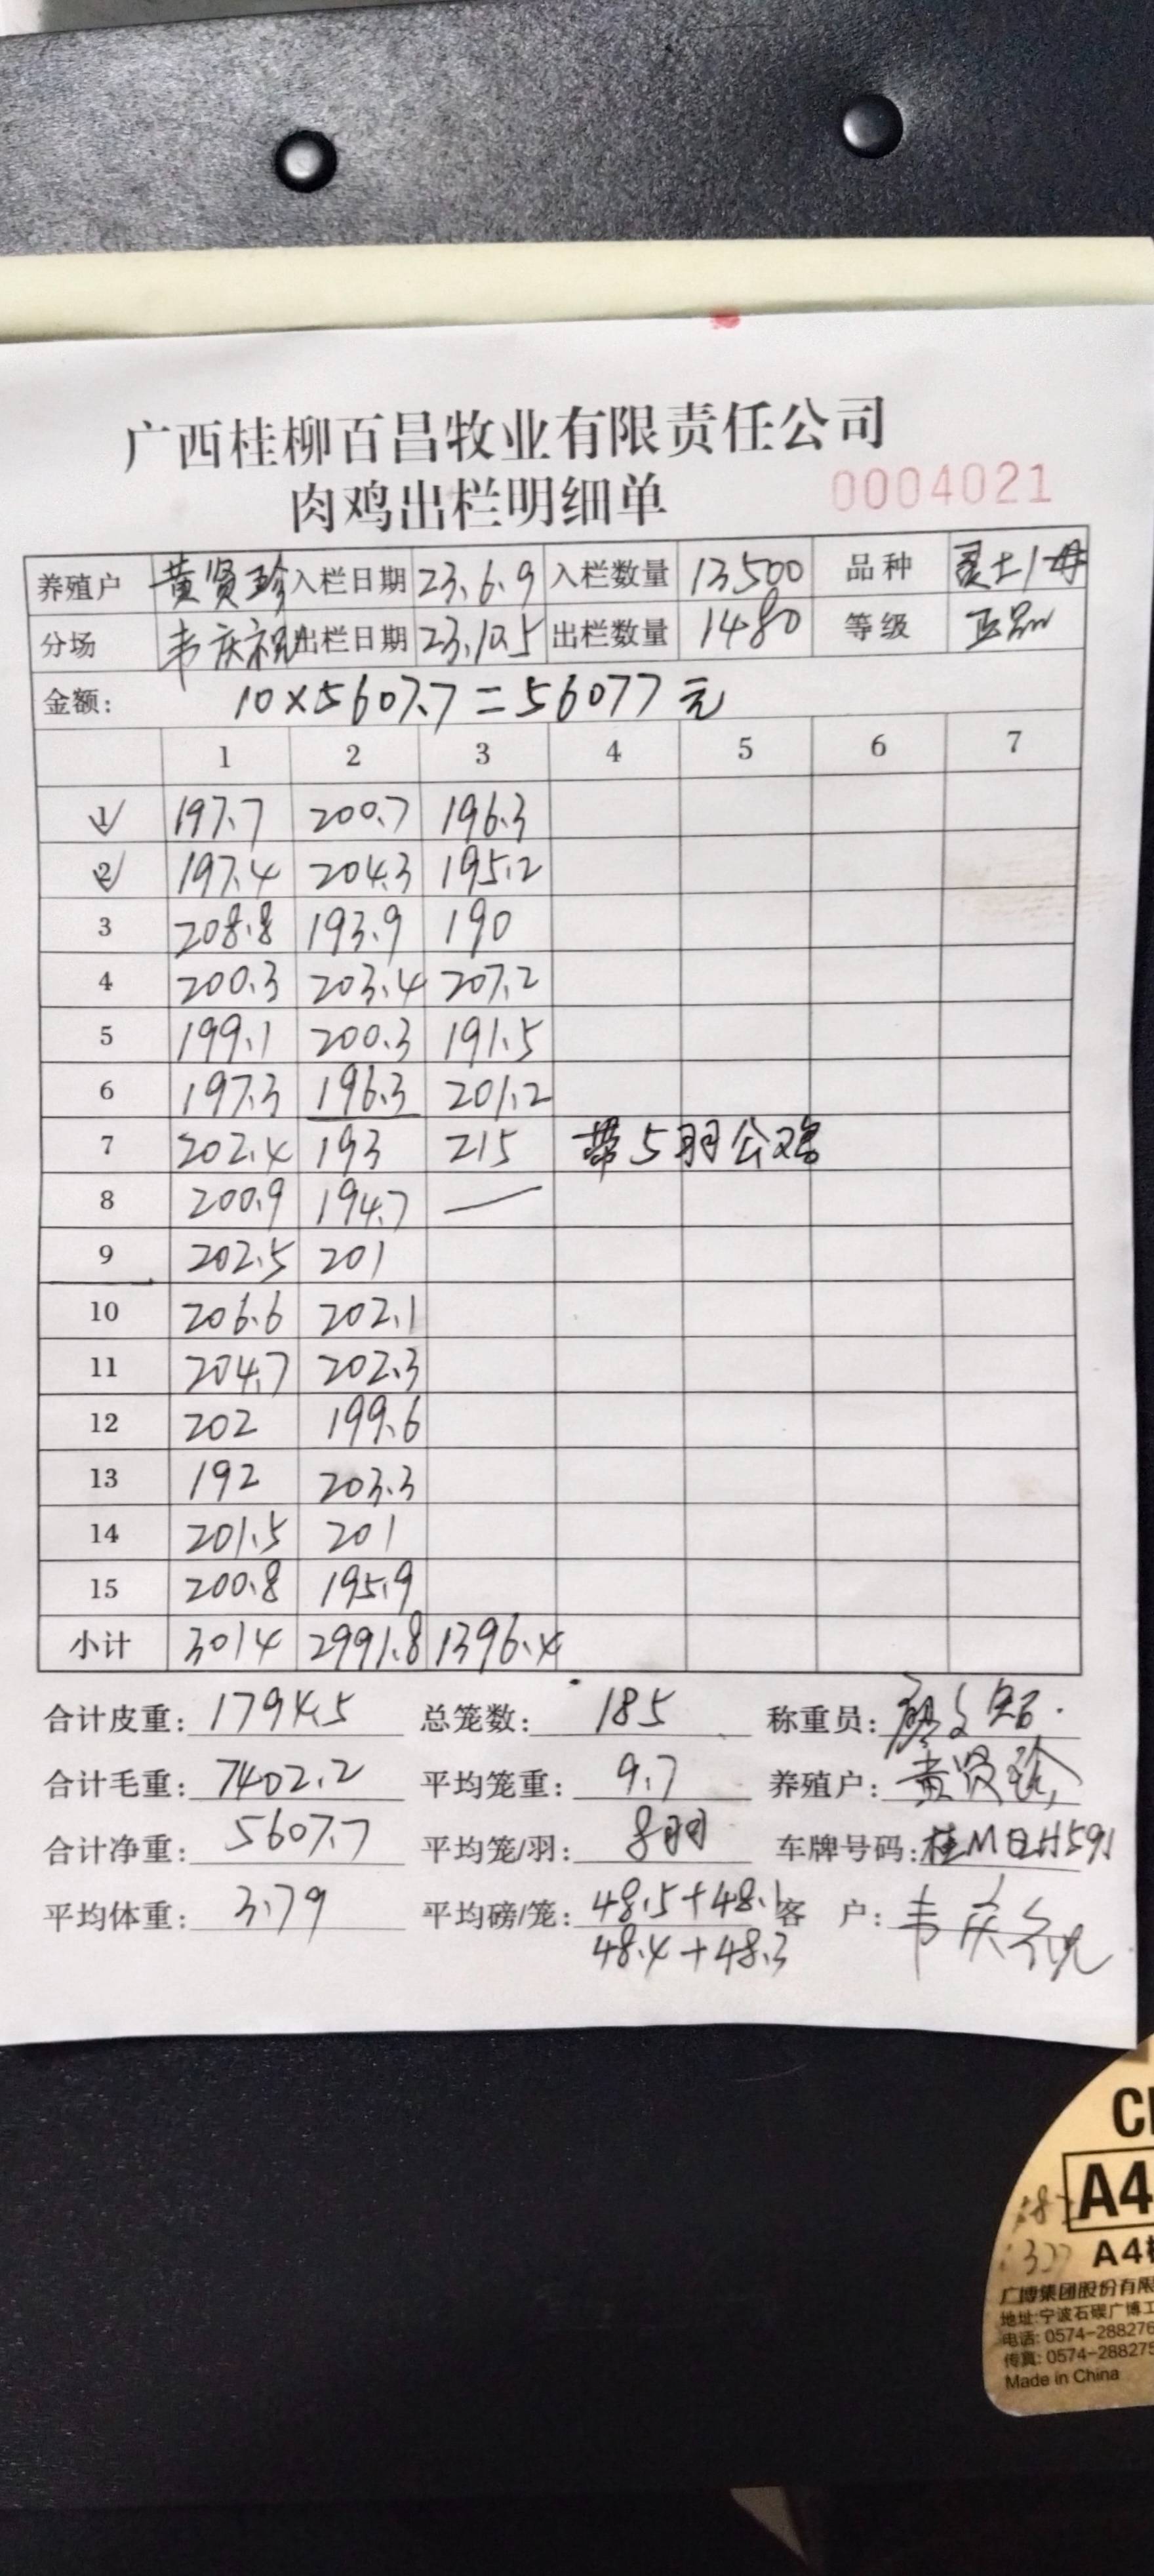 广西桂柳百昌牧业有限责任公司
肉鸡出栏明细单 0004021
养殖户 黄贤珍 入栏日期 23.6.9 入栏数量 13500 品种 灵士1母
分场 韦庆祝 出栏日期 23.10.5 出栏数量 1480 等级 正品
金额: 10×5607.7=56077元
1 2 3 4 5 6 7
1 197.7 200.7 196.3
2 197.4 204.3 195.2
3 208.8 193.9 190
4 200.3 203.4 207.2
5 199.1 200.3 191.5
6 197.3 196.3 201.2
7 202.4 193 215 带5羽公鸡
8 200.9 194.7 —
9 202.5 201
10 206.6 202.1
11 204.7 202.3
12 202 199.6
13 192 203.3
14 201.5 201
15 200.8 195.9
小计 3014 2991.8 1396.4
合计皮重: 1794.5 总笼数: 185 称重员:
合计毛重: 7402.2 平均笼重: 9.7 养殖户: 黄贤珍
合计净重: 5607.7 平均笼/羽: 8羽 车牌号码:
平均体重: 3.79 平均磅/笼: 48.5+48.1 客 户: 韦庆祝
48.4+48.3
A4
A4
广博集团股份有限
地址:宁波石碶广博工
电话: 0574-288276
传真: 0574-288275
Made in China